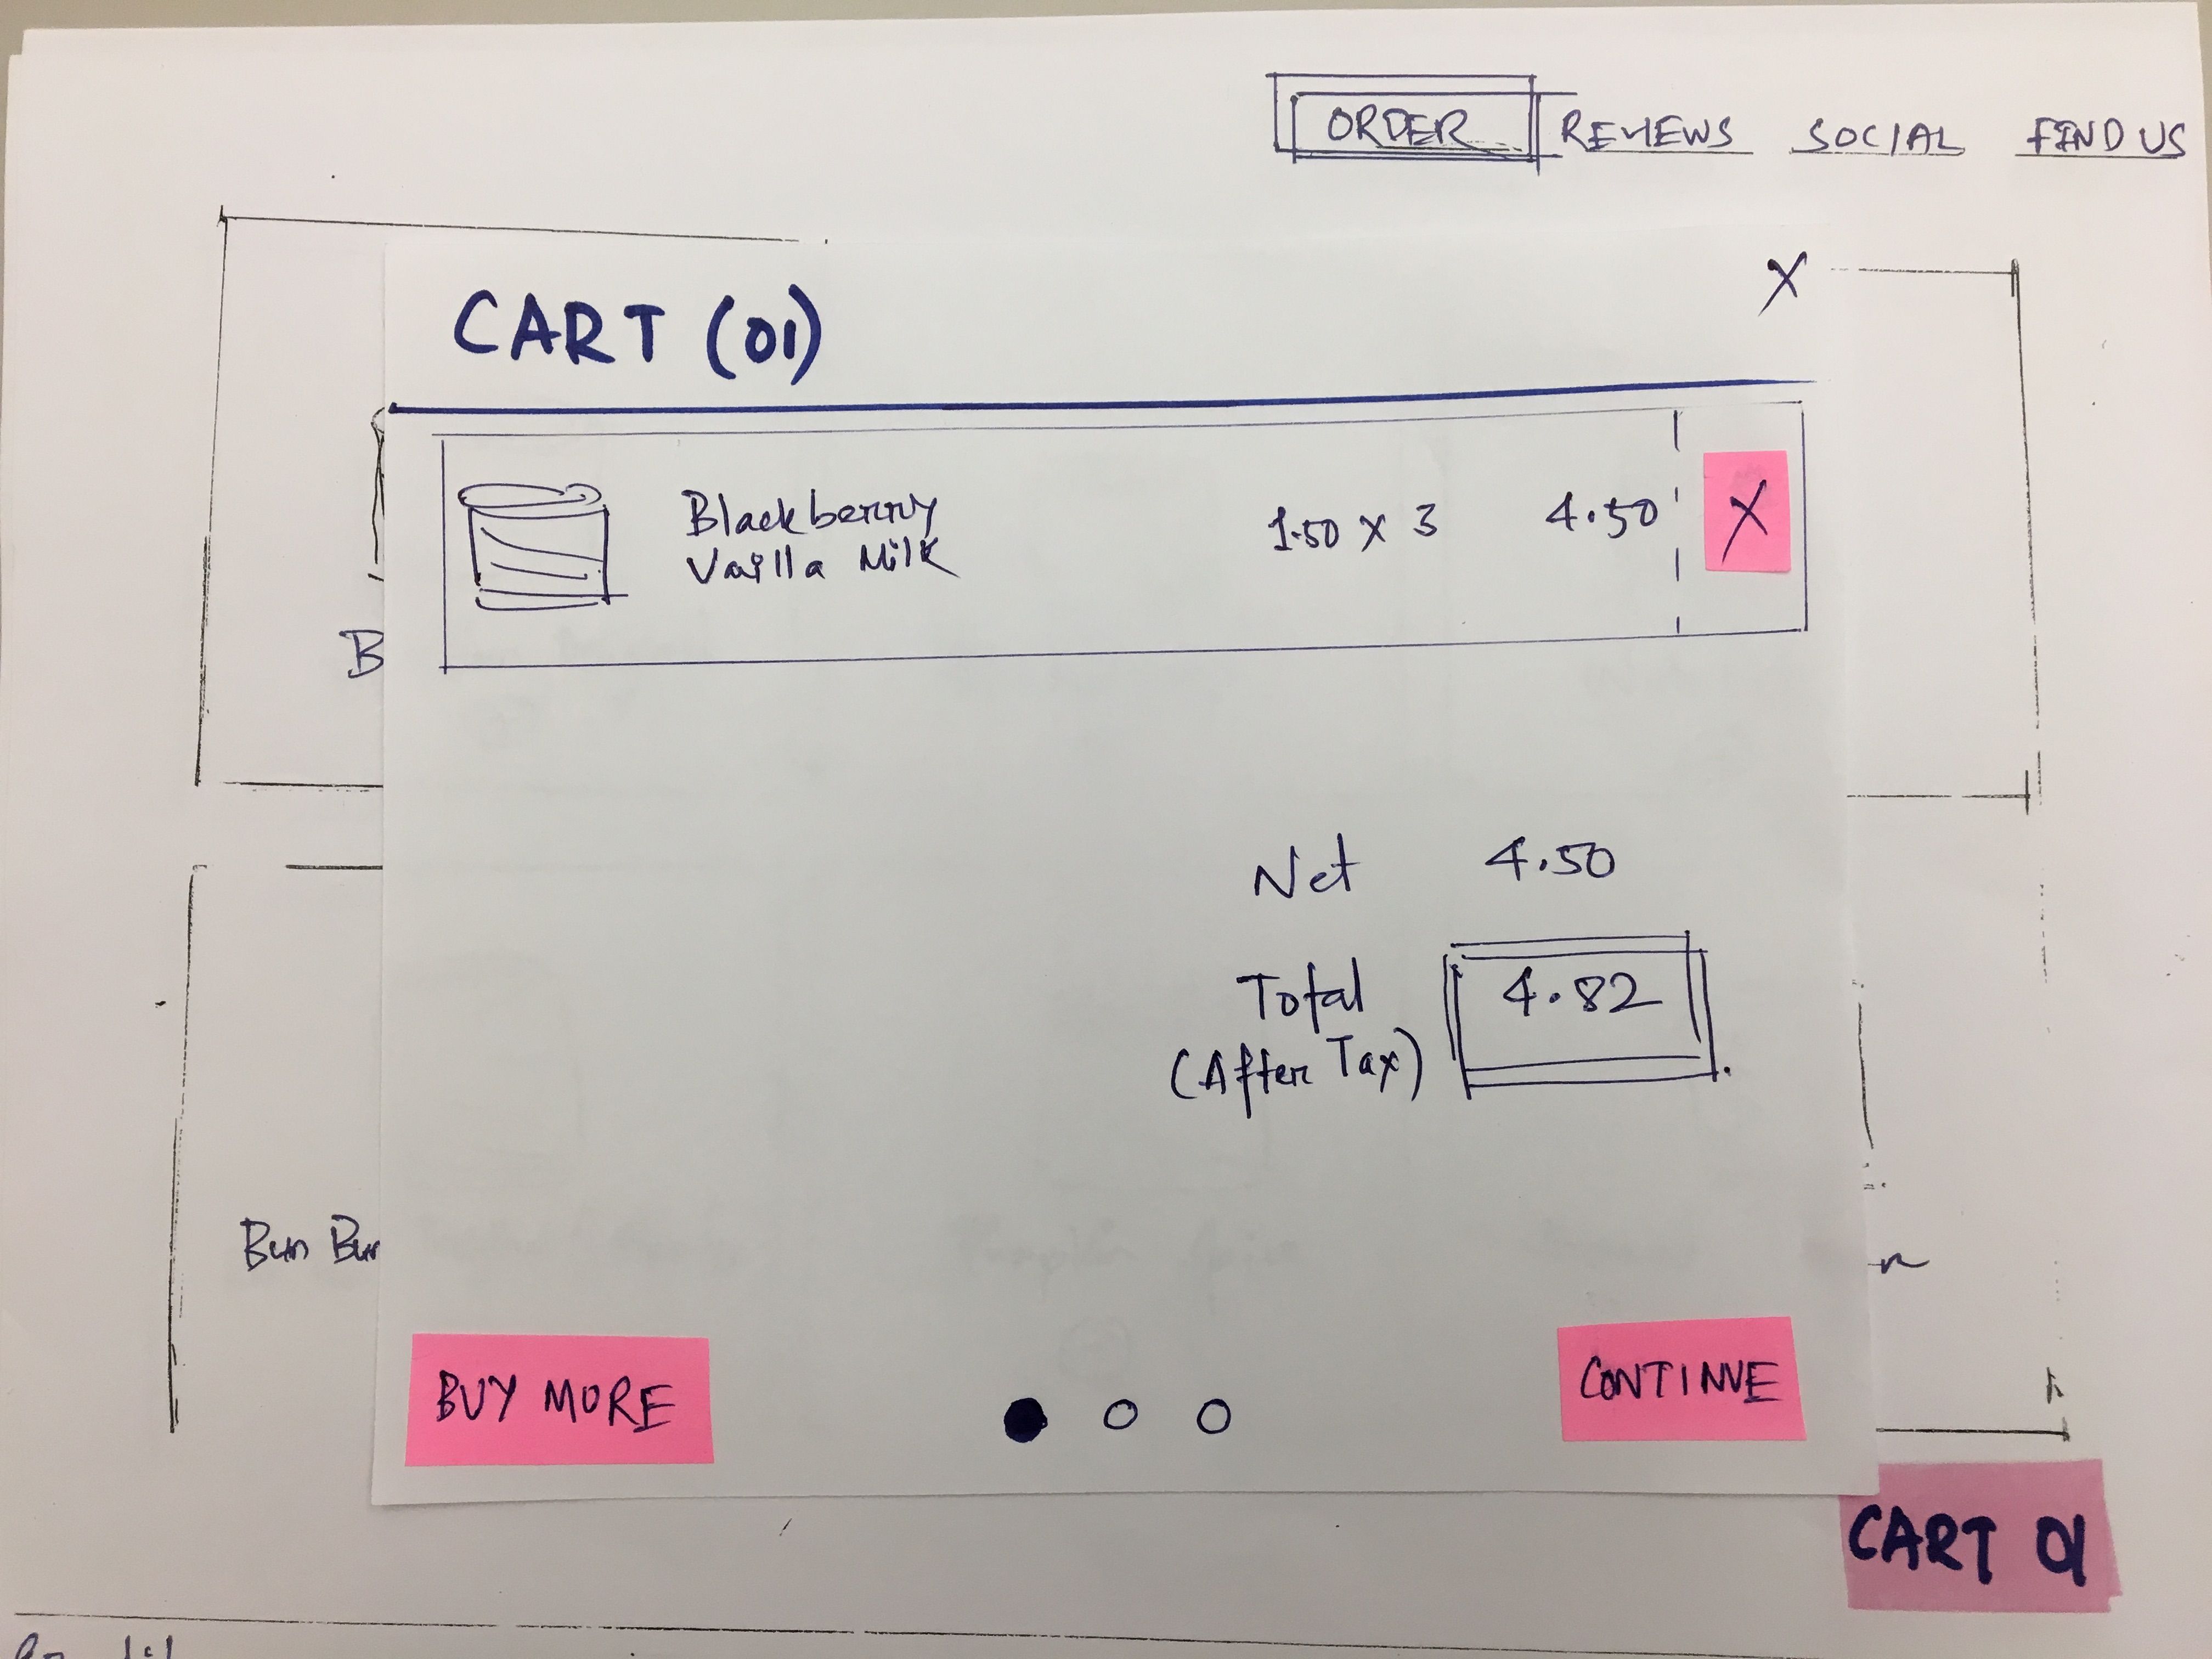 ORDER REVIEWS SOCIAL FIND US
CART (01) X
Blackberry
Vailla Milk
1.50 X 3 4.50 X
B
Net 4.50
Total 4.82
(After Tax)
Bun Bun
BUY MORE
CONTINUE
CART 01